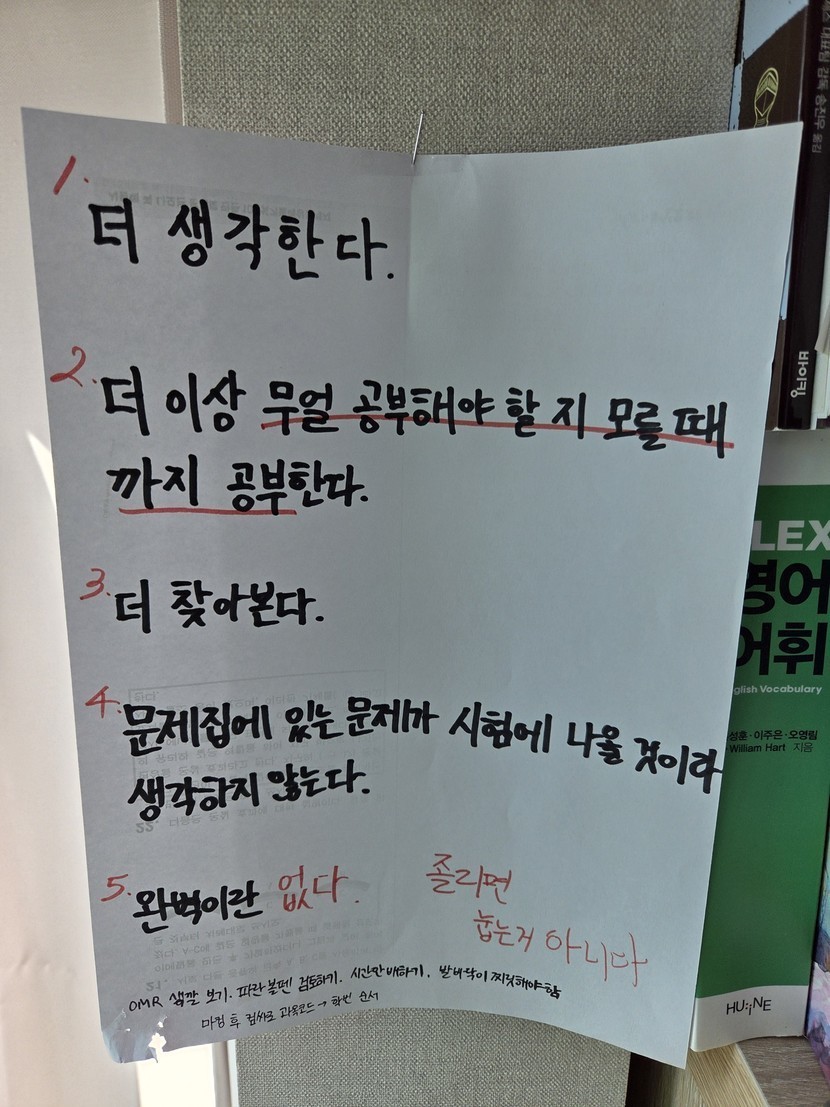 1. 더 생각한다.
2. 더 이상 무얼 공부해야 할 지 모를 때
까지 공부한다.
3. 더 찾아본다.
4. 문제집에 있는 문제가 시험에 나올 것이라
생각하지 않는다.
5. 완벽이란 없다.
졸리면
눕는거 아니다
OMR 색깔 보기. 파란볼펜 검토하기. 시간안배하기. 발바닥이 찌릿해야함
마킹 후 컴싸로 과목코드 → 학번 순서
바이킹
LEX
영어
어휘
glish Vocabulary
성훈·이주은·오영림
William Hart 지음
HU:iNE